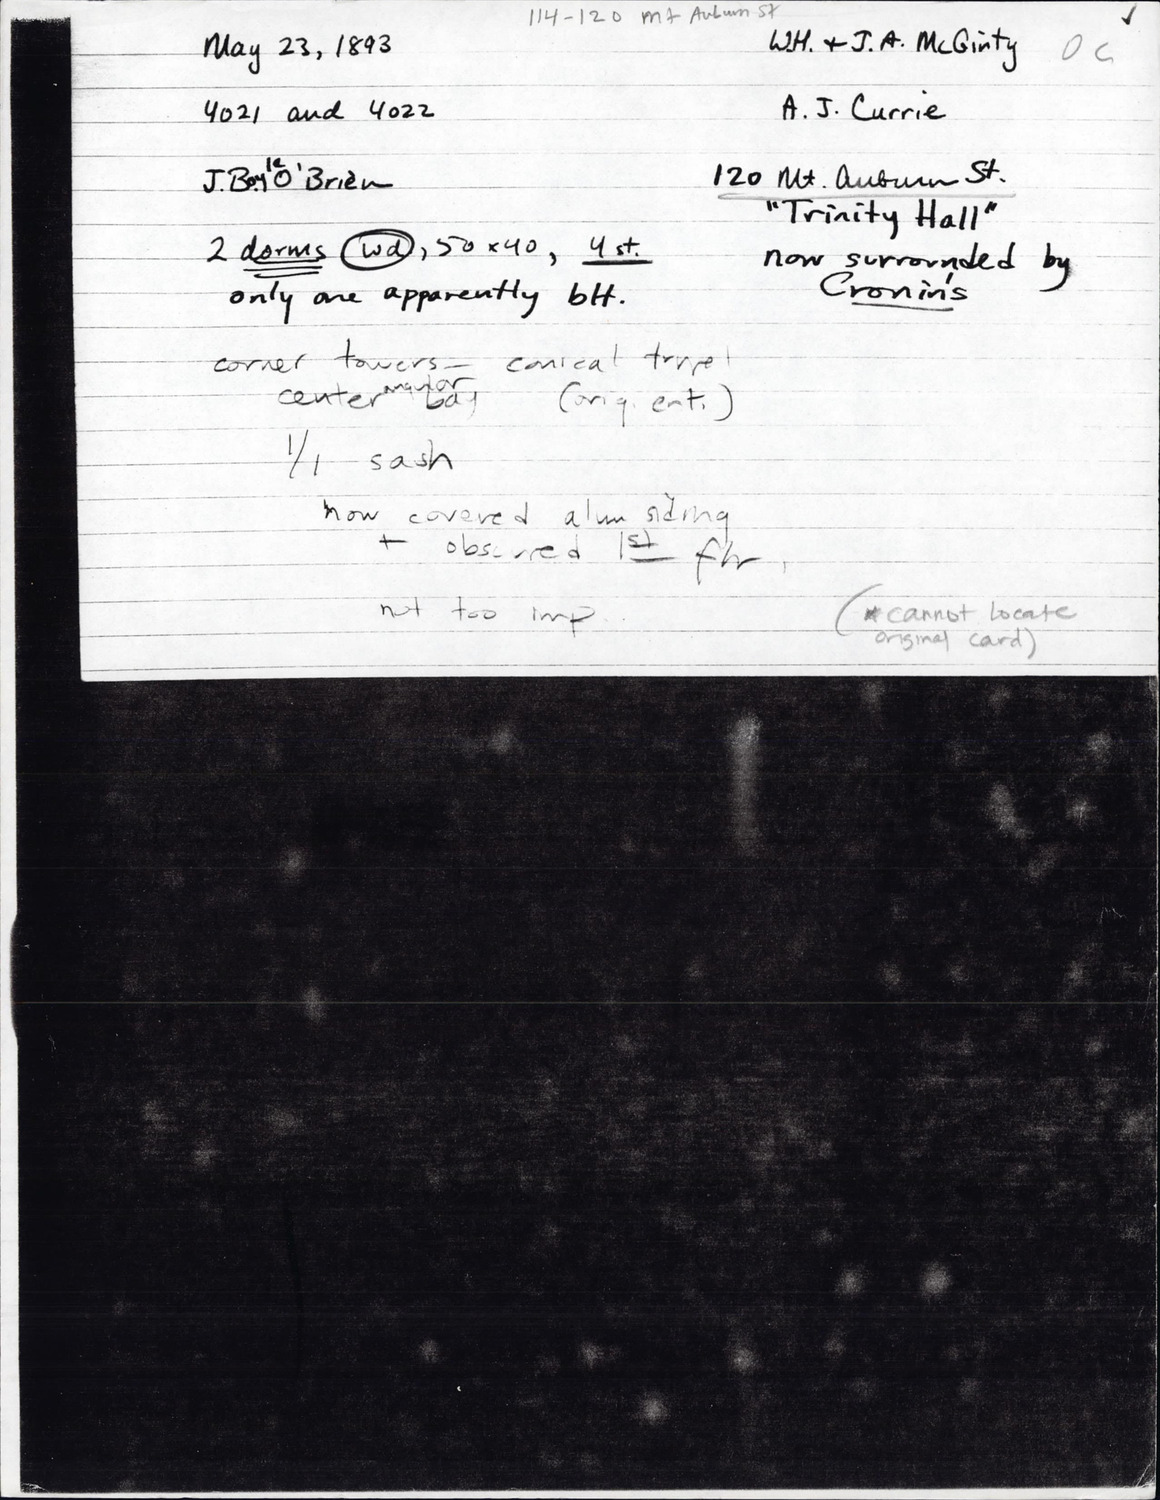 114-120 Mt Auburn St ✓
May 23, 1893
W.H. + J.A. McGinty
4021 and 4022
A. J. Currie
J. Boyle O'Brien
120 Mt. Auburn St.
"Trinity Hall"
2 dorms wd, 50 x 40, 4 st.
now surrounded by
only one apparently blt.
Cronin's
corner towers – conical
center angular bay (orig. ent.)
1/1 sash
now covered alum siding
+ obscured 1st flr.
not too imp.
(*cannot locate
original card)